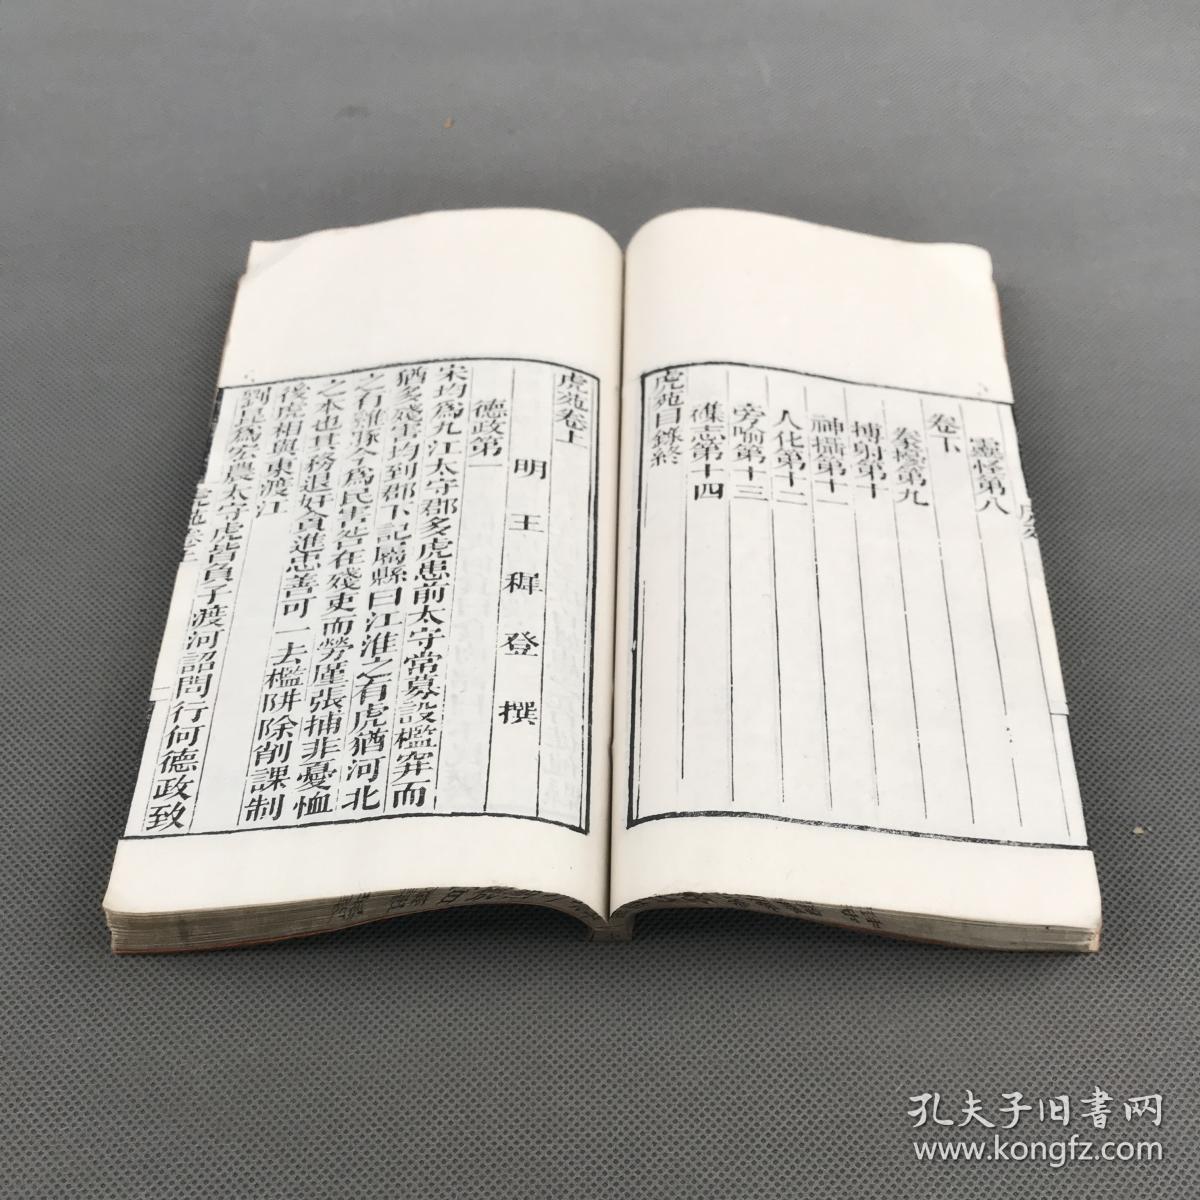 靈怪第八
卷下
豢擾第九
搏射第十
神攝第十一
人化第十二
旁喻第十三
襍志第十四
虎苑目錄終
虎苑卷上
明王穉登撰
德政第一
宋均為九江太守郡多虎患前太守常募設檻穽而
猶多殘害均到郡下記屬縣曰江淮之有虎猶河北
之有雞豚今為民害咎在殘吏而勞厪張捕非憂恤
之本也其務退奸貪進忠善可一去檻阱除削課制
後虎相與東渡江
劉昆為宏農太守虎皆負子渡河詔問行何德政致
虎苑卷上
孔夫子旧書网
www.kongfz.com